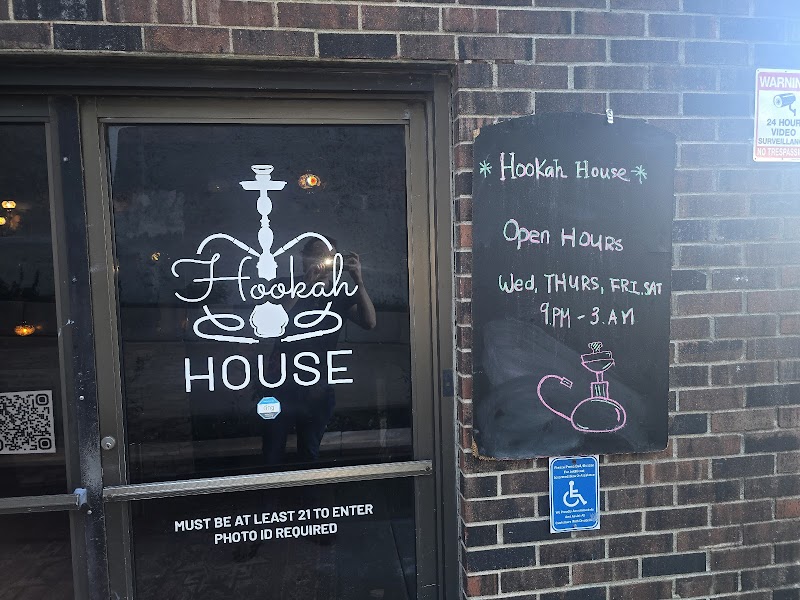 Hookah
HOUSE
ring
MUST BE AT LEAST 21 TO ENTER
PHOTO ID REQUIRED
* Hookah House *
Open HOURS
Wed, THURS, FRI. SAT
9.PM - 3.AM
WARNING
24 HOUR
VIDEO
SURVEILLANCE
NO TRESPASSING